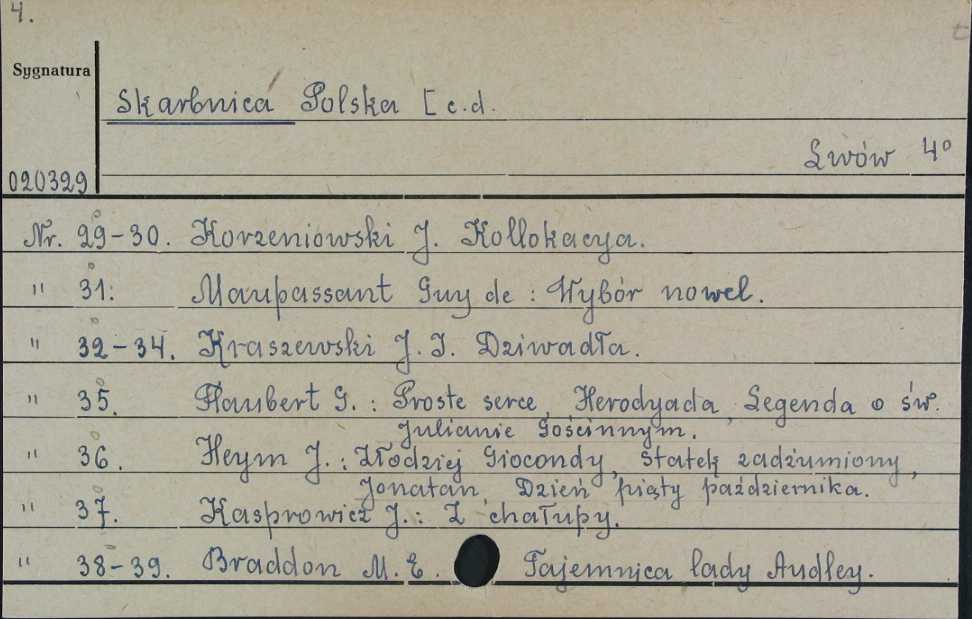 4.
Sygnatura
Skarbnica Polska [c.d.
Lwów 4°
020329
Nr. 29-30. Korzeniowski J. Kollokacya.
" 31: Maupassant Guy de : Wybór nowel.
" 32-34. Kraszewski J. I. Dziwadła.
" 35. Flaubert G. : Proste serce, Herodyada, Legenda o św.
Julianie Gościnnym.
" 36. Heym J. : Złodziej Giocondy, statek zadżumiony,
Jonatan, Dzień piąty października.
" 37. Kasprowicz J. : Z chałupy.
" 38-39. Braddon M. E. Tajemnica lady Audley.